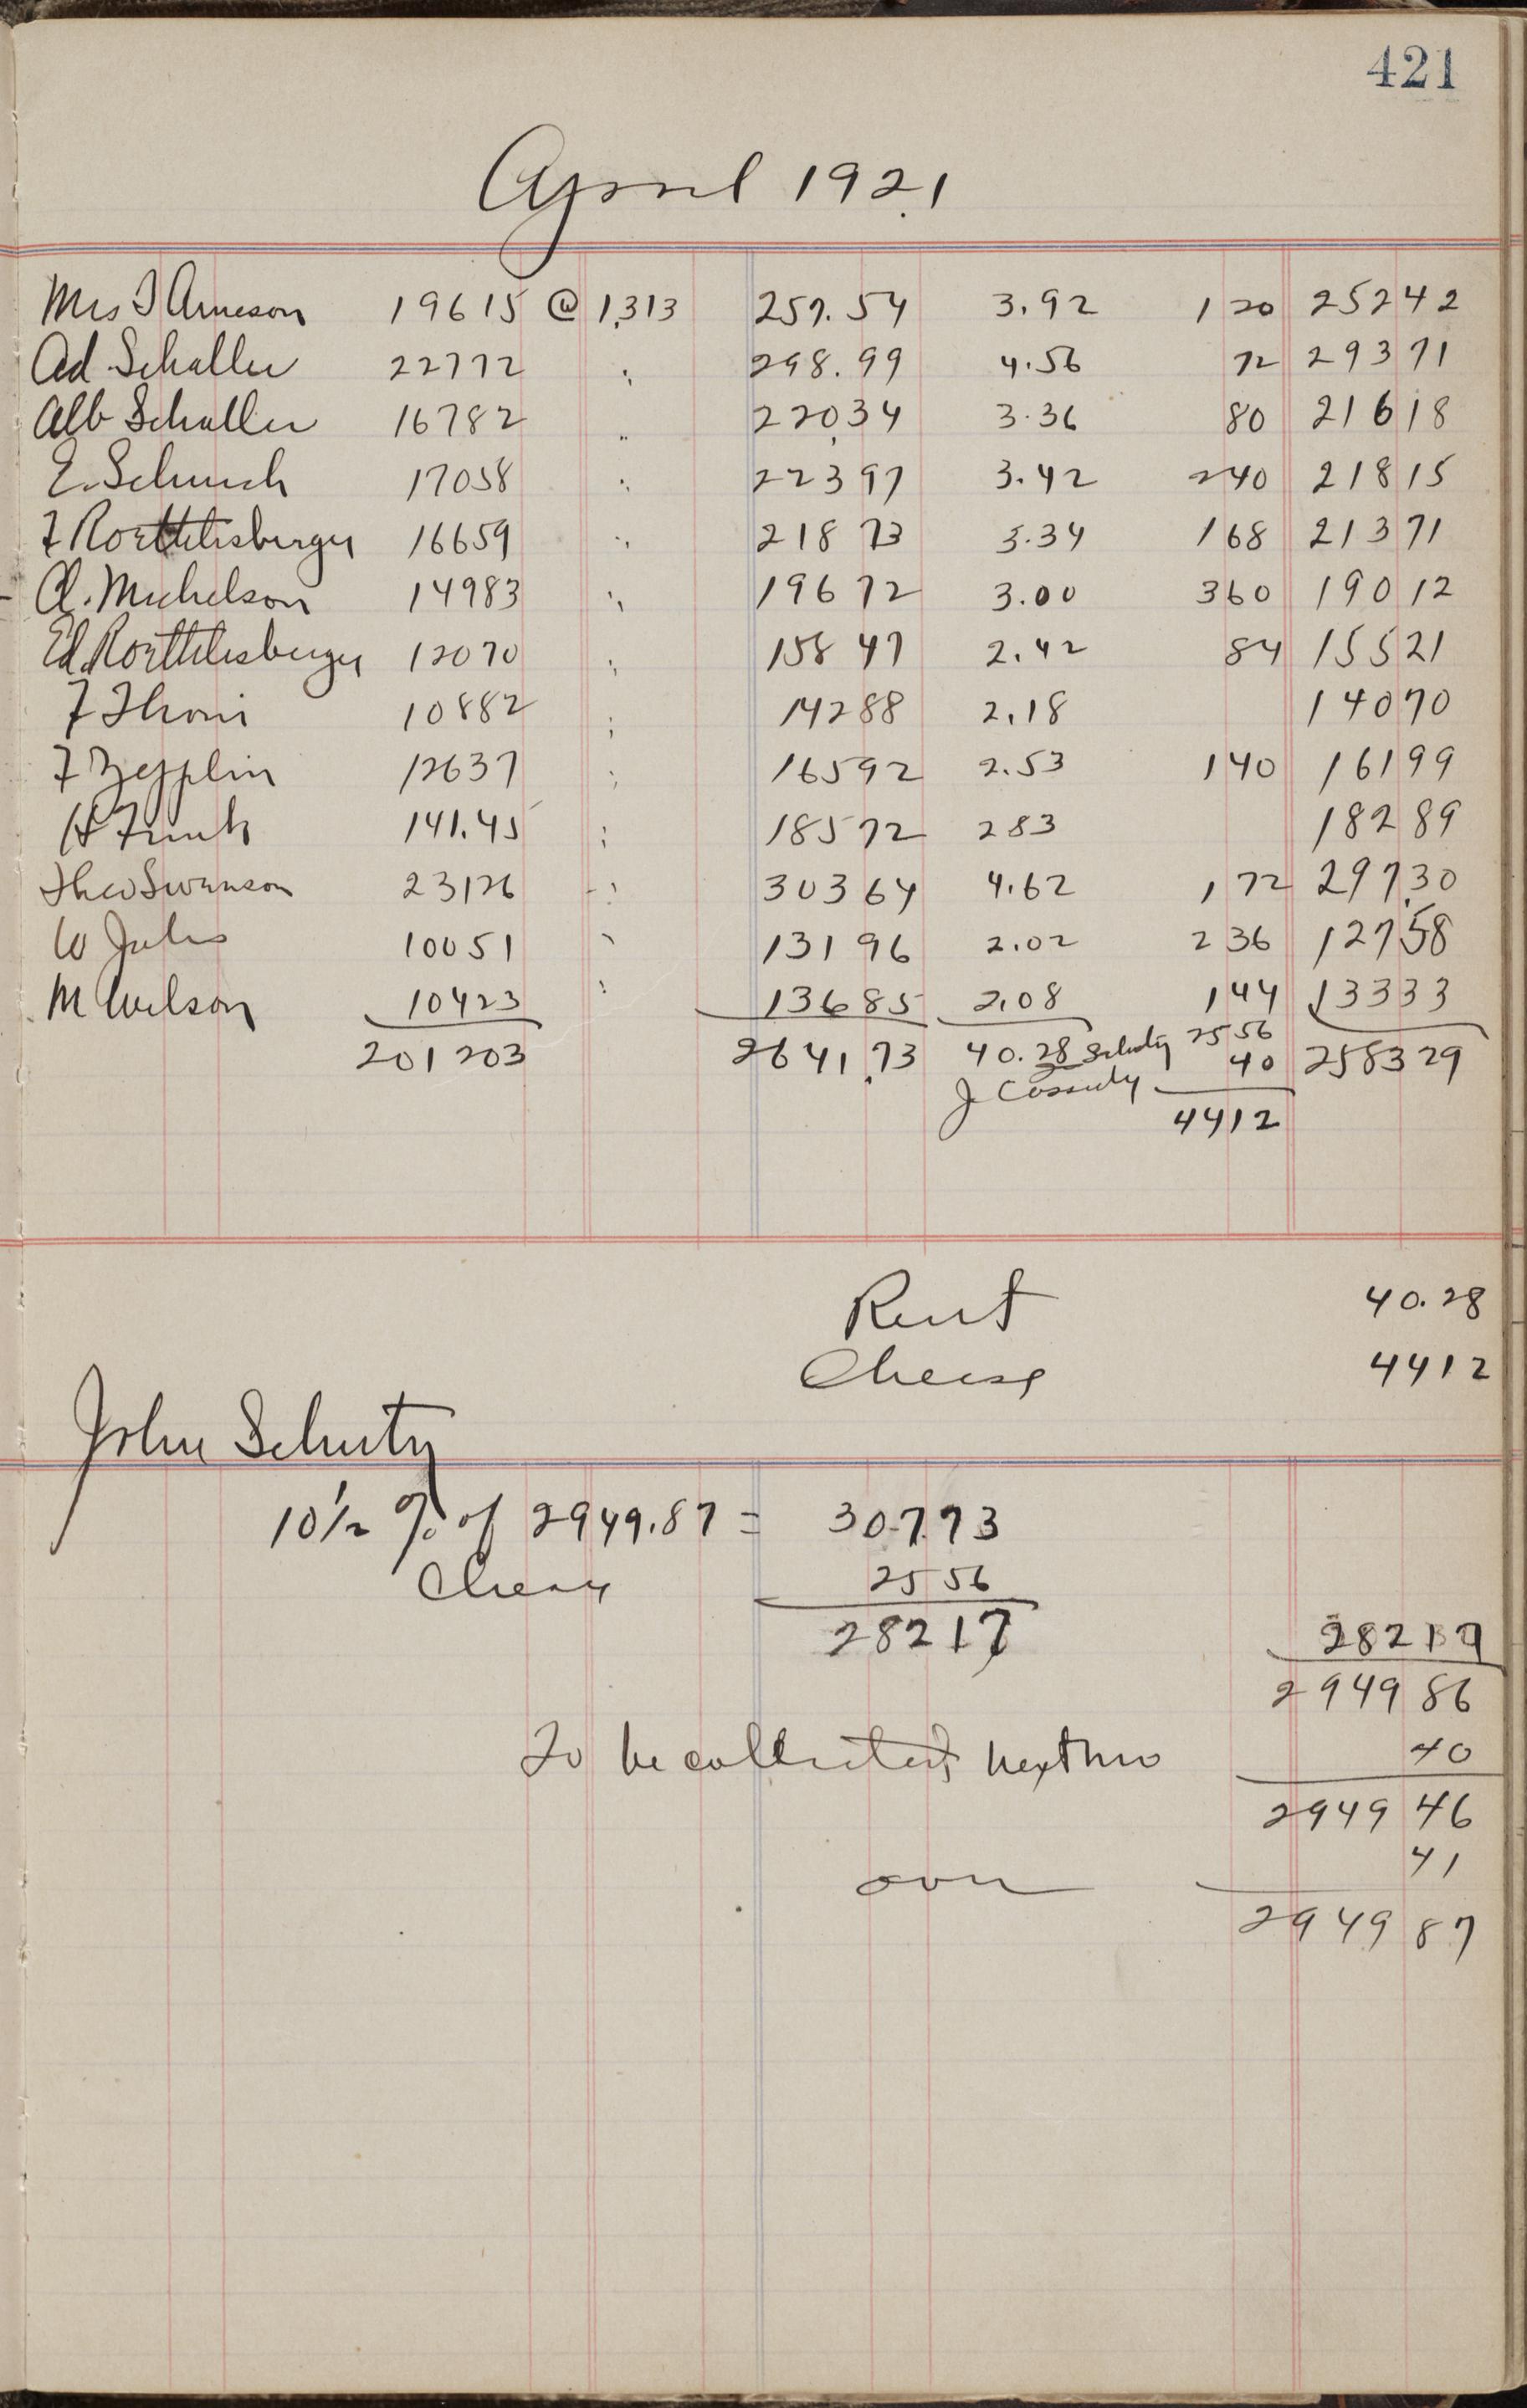 421
April 1921
Mrs J Arneson 19615 @ 1.313 257.54 3.92 1 20 252 42
Ad. Schaller 22772 " 298.99 4.56 72 293 71
Alb Schaller 16782 " 220.34 3.36 80 216 18
E. Schuch 17058 " 223 97 3.42 2 40 218 15
F Roethlisberger 16659 " 218 73 3.34 1 68 213 71
A. Michelson 14983 " 196 72 3.00 3 60 190 12
Ed. Roethlisberger 12070 " 158 47 2.42 84 155 21
F Thoni 10882 " 142 88 2.18 140 70
F Zepplin 12637 " 165 92 2.53 1 40 161 99
H Funk 141.45 " 185 72 2 83 182 89
Theo Swanson 23126 " 303 64 4.62 1 72 297.30
W Jules 10051 " 131 96 2.02 2 36 127 58
M Wilson 10423 " 136 85 2.08 1 44 133 33
201203 2641.73 40.28 Schutz 25 56 2583 29
J Cassidy 40
44 12
Rent 40.28
Cheese 44 12
John Schutz
10 1/2 % of 2949.87 = 307.73
Cheese 25 56
282 17 282 17
2949 86
To be collected next mo 40
2949 46
over 41
2949 87